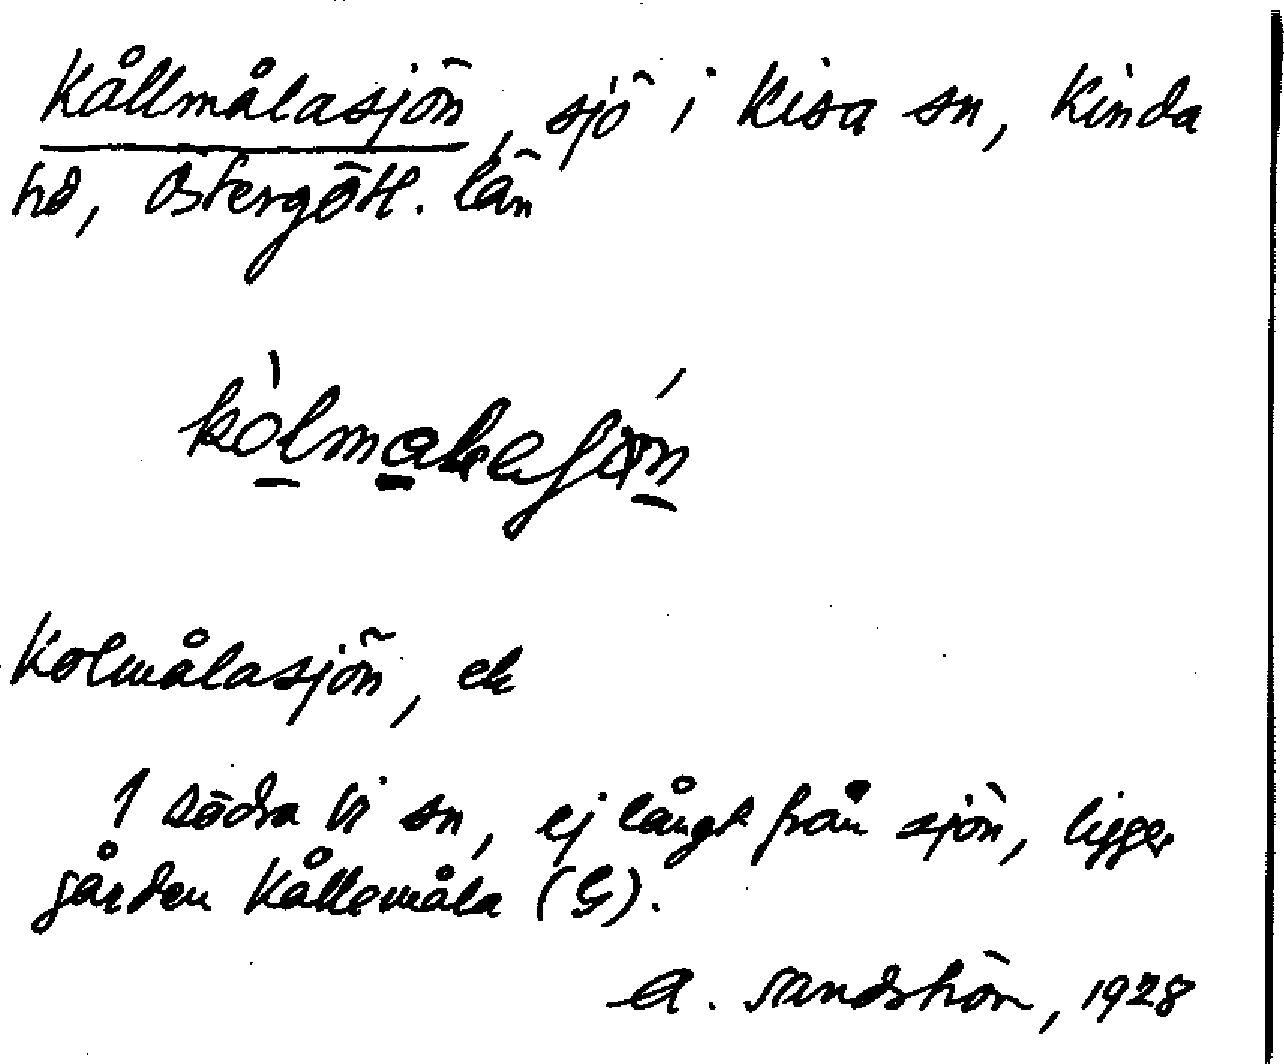 Kållmålasjön, sjö i Kisa sn, Kinda
hd, Östergötl. län
Kolmålasjön, ek
I Södra Vi sn, ej långt från sjön, ligger
gården Kållemåla (G).
A. Sandström, 1928